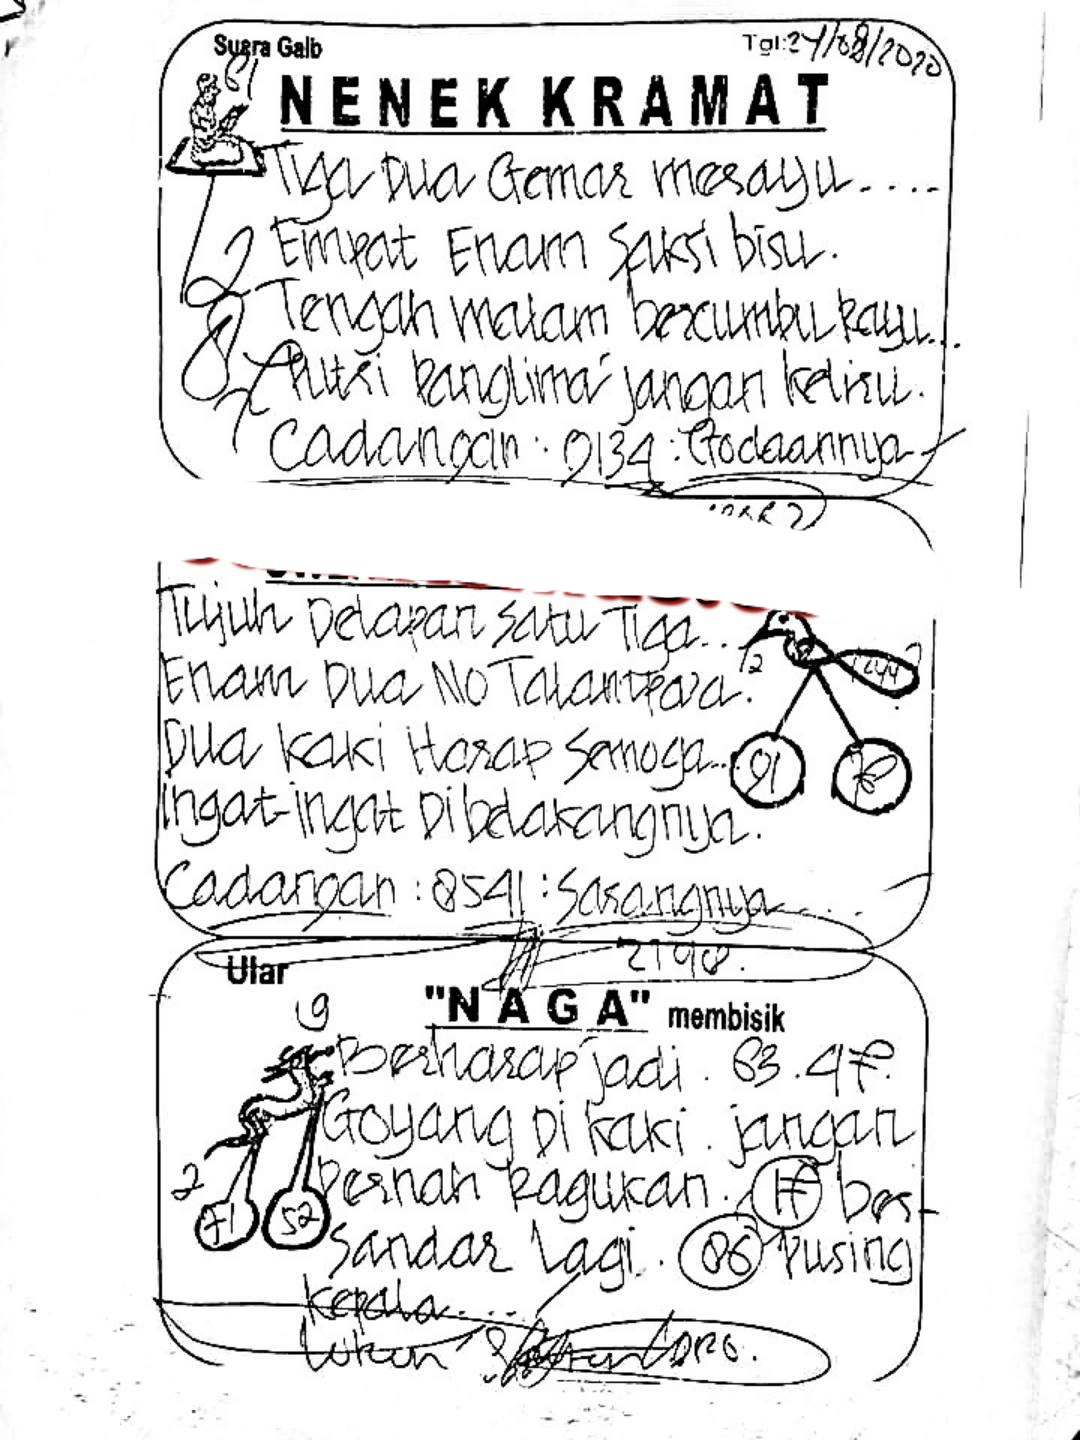 Suara Gaib
Tgl: 24/08/2020
61
NENEK KRAMAT
Tiga Dua Gemar merayu....
2 Empat Enam Saksi bisu.
Tengah malam bercumbu Rayu...
8 Putri Panglima jangan keliru.
7
Cadangan: 9134: Godaannya
Tujuh Delapan Satu Tiga..
12
Enam Dua No Talantara.
Dua kaki Harap Semoga...
91
ingat-ingat Dibelakangnya.
Cadangan: 8541: Sarangnya....
2198.
Ular
9
"NAGA" membisik
Berharap jadi. 63.47.
Goyang Di kaki. jangan
2 Pernah Ragukan. 17 ber-
71 52
Sandar lagi. 86 Pusing
kepala....